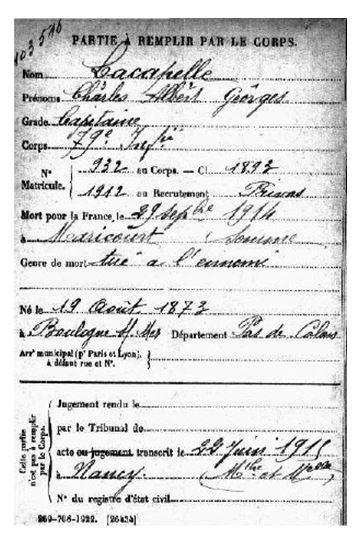 PARTIE À REMPLIR PAR LE CORPS.
Nom Lacapelle
Prénoms Charles Albert Georges
Grade Capitaine
Corps 79e Infie
N° Matricule. 932 au Corps. — Cl. 1893
1912 au Recrutement
Mort pour la France le 29 Sepbre 1914
à Maricourt Somme
Genre de mort tué à l'ennemi
Né le 19 Août 1873
à Boulogne s/ Mer Département Pas de Calais
Arrt municipal (pr Paris et Lyon),
à défaut rue et N°.
Cette partie n'est pas à remplir par le Corps.
Jugement rendu le
par le Tribunal de
acte ou jugement transcrit le 22 Juin 1915
à Nancy (Mthe et Melle)
N° du registre d'état civil
269-708-1922. [26434]